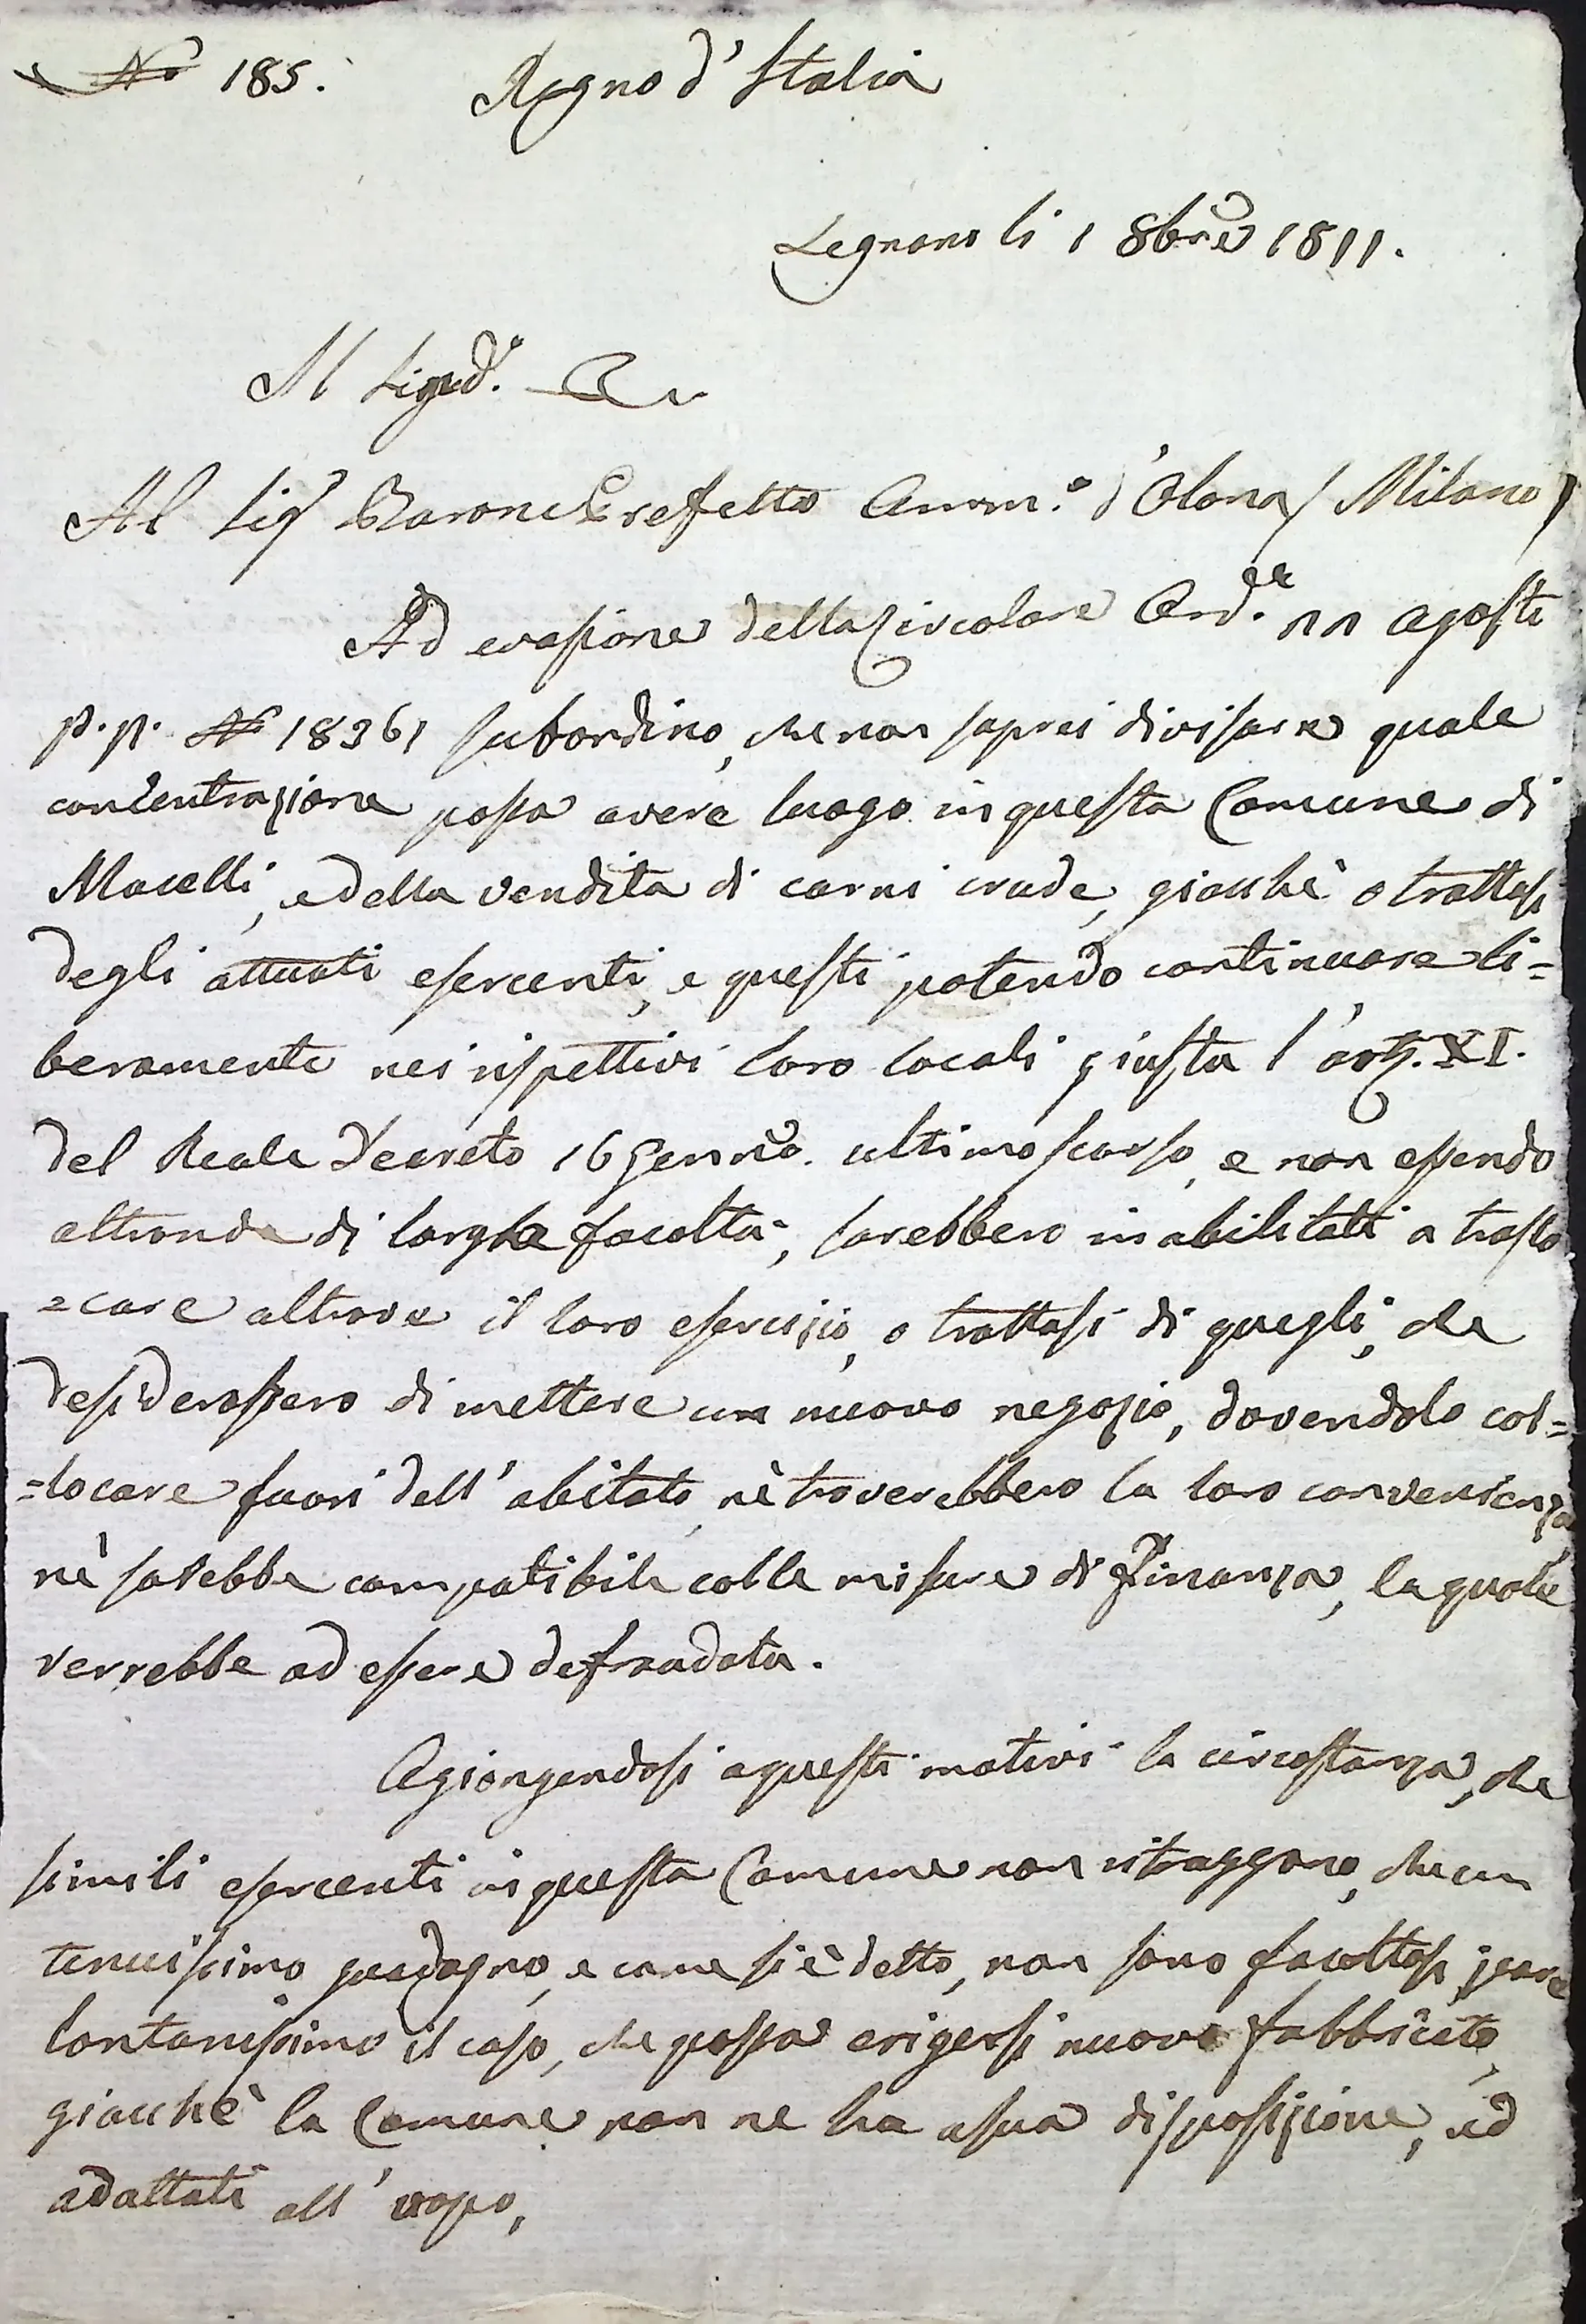 N° 185. Regno d'Italia
Legnano li 1 8bre 1811.
Il Sigd.°
Al Sigr Barone Prefetto Amm.° d'Olona / Milano /
Ad evasione della Circolare Ord.za 22 agosto
p.p. N° 18361 subordino, che non saprei divisare quale
concentrazione possa avere luogo in questa Comune di
Macelli, e della vendita di carni crude, giacchè o trattasi
degli attuati esercenti, e questi potendo continuare li=
beramente nei rispettivi loro locali giusta l'art. XI.
del Reale Decreto 16 Gennro. ultimo scorso, e non essendo
altronde di larghe facoltà, sarebbero inabilitati a traslo
=care altrove il loro esercizio, o trattasi di quegli, che
desiderassero di mettere un nuovo negozio, dovendolo col=
=locare fuori dell'abitato, nè troverebbero la loro convenienza
nè sarebbe compatibile colle misure di Finanza, la quale
verrebbe ad essere defraudata.
Agiongendosi a questi motivi la circostanza, che
simili esercenti in questa Comune non ritraggono, che un
tenuissimo guadagno, e come si è detto, non sono facoltosi, pare
lontanissimo il caso, che possa erigersi nuovo fabbricato,
giacchè la Comune non ne ha a sua disposizione, ed
adattati all'uopo,